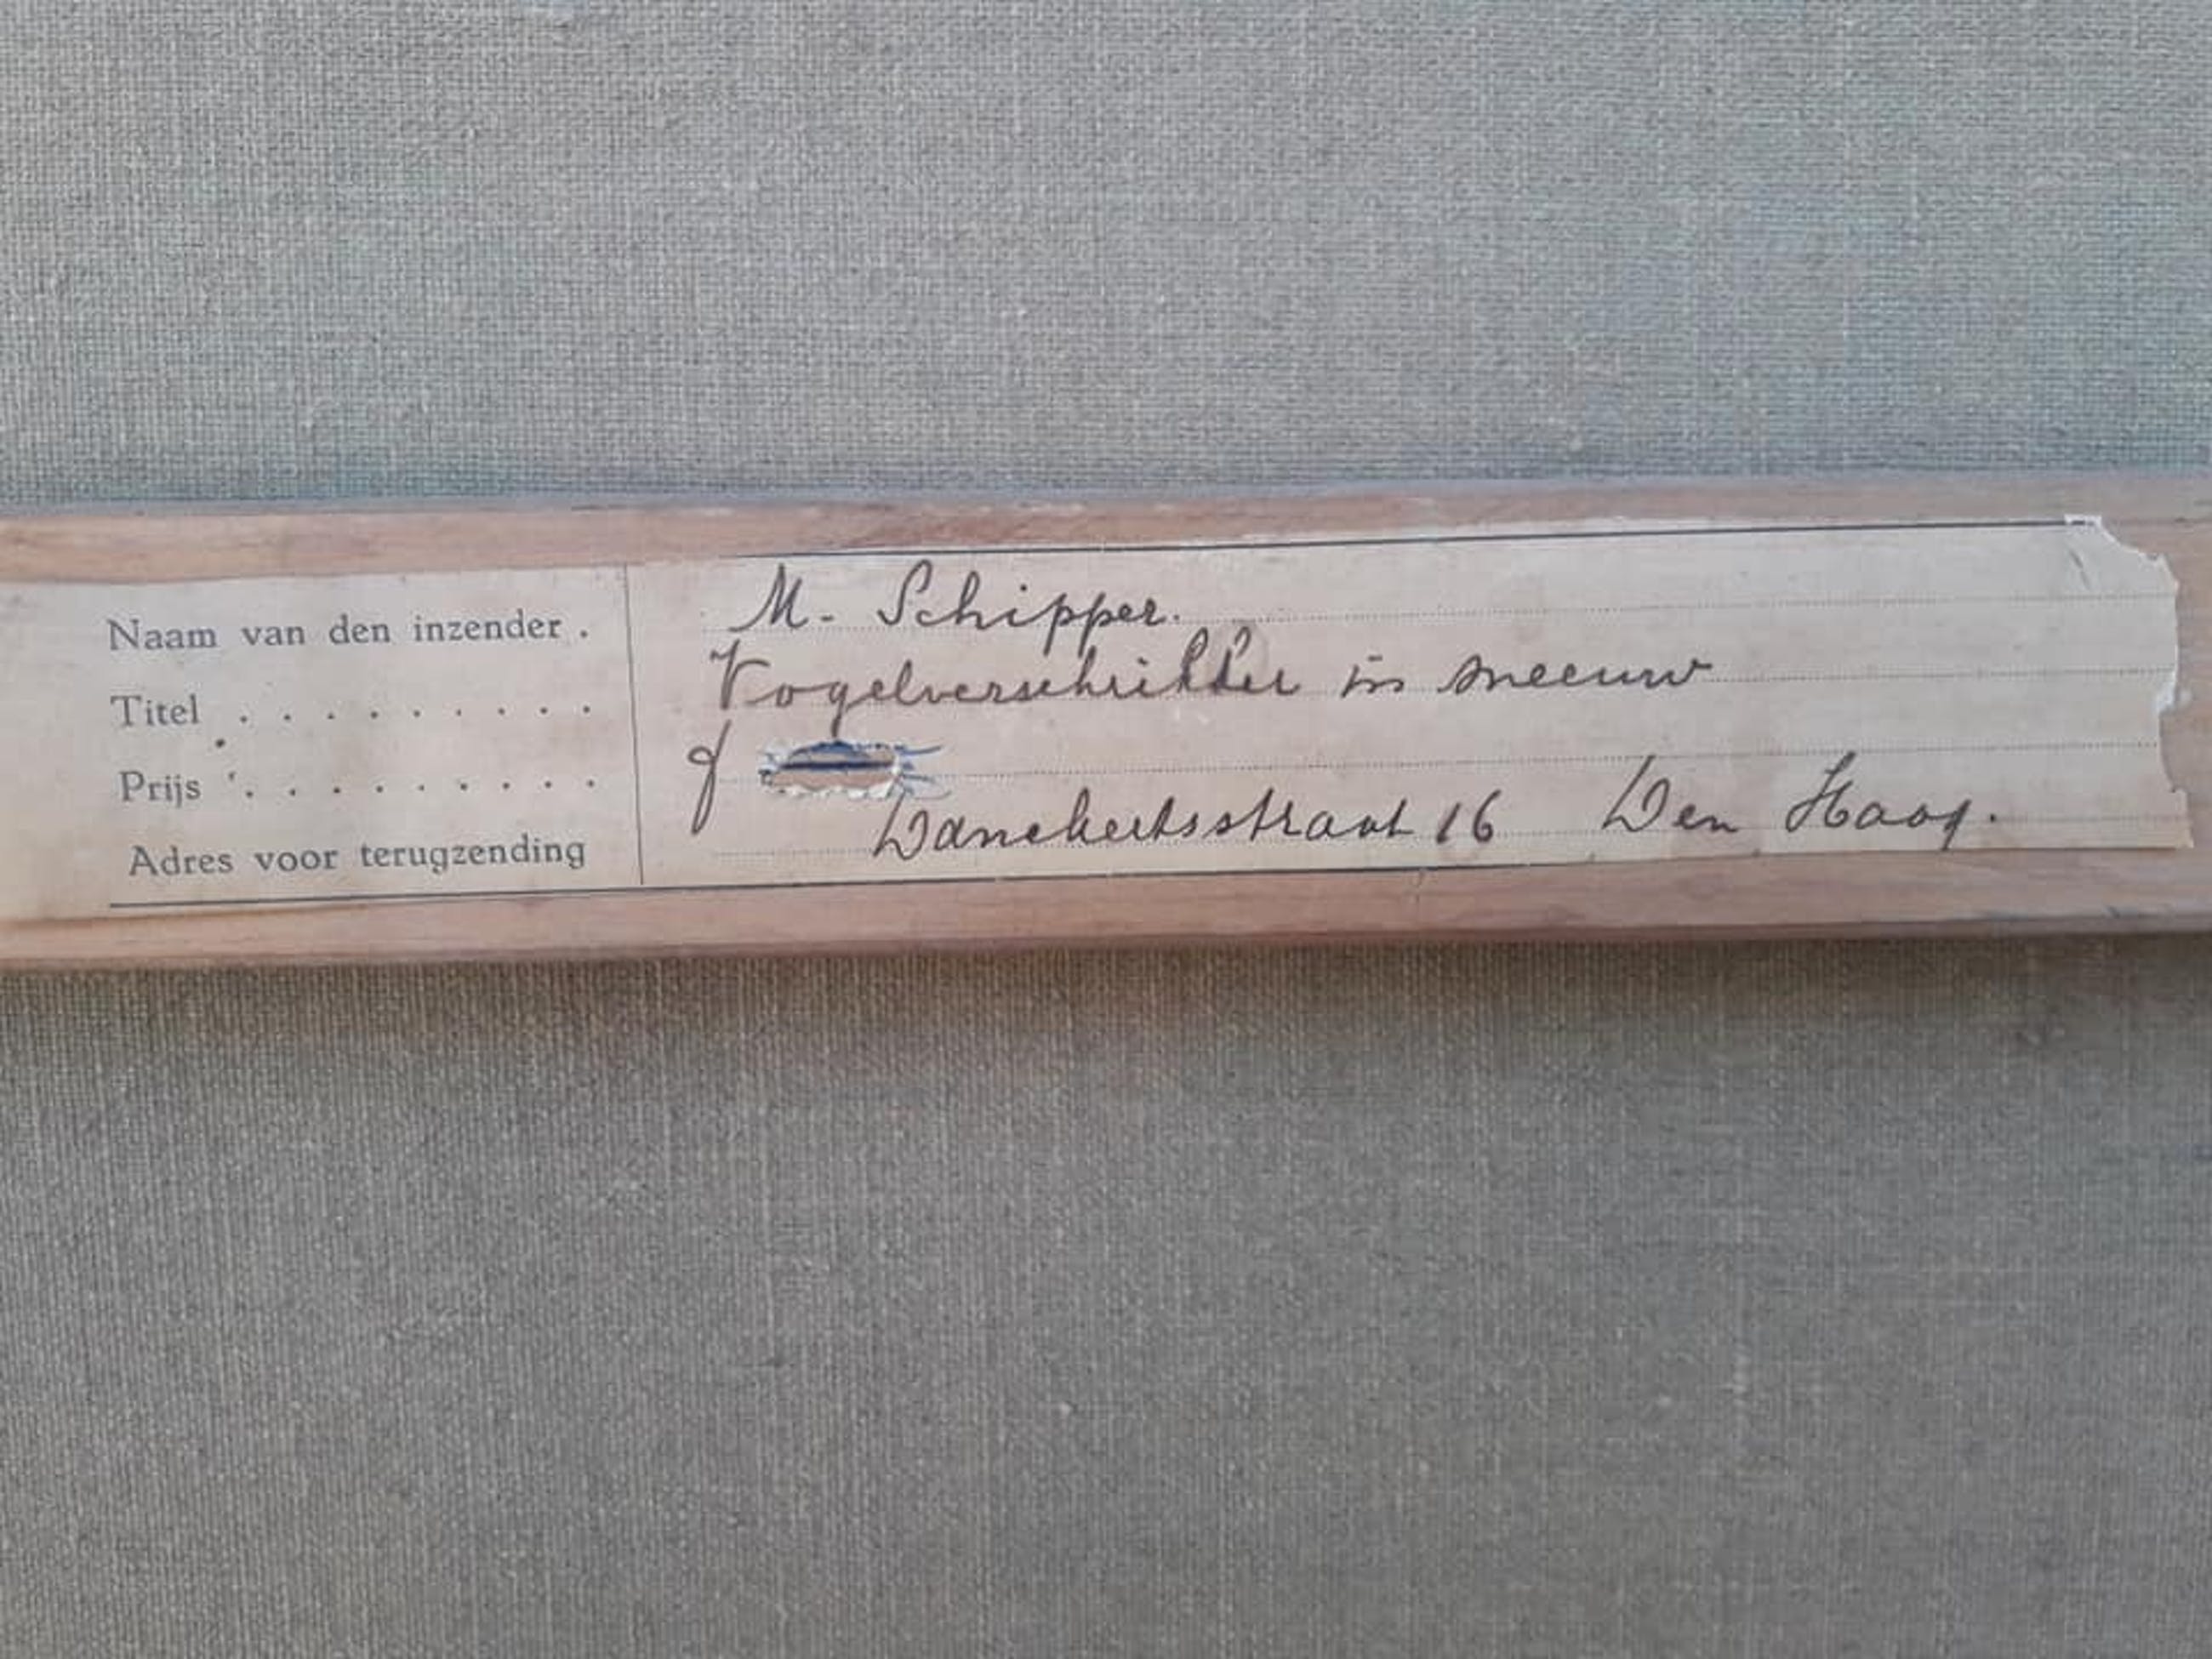 Naam van den inzender . M. Schipper.
Titel . . . . . . . . . Vogelverschrikker in sneeuw
Prijs . . . . . . . . . f
Adres voor terugzending Danckertsstraat 16 Den Haag.